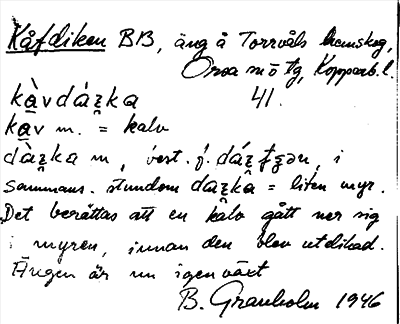 Kåfdiken BB, äng å Torrvåls hemskog,
Orsa sn tg, Kopparb. l.
kàvdázka 41.
kav m. = kalv
dàzka m, best. f. , i
sammans. stundom dazka = liten myr.
Det berättas att en kalv gått ner sig
i myren, innan den blev utdikad.
Ängen är nu igenväxt
B. Granholm 1946